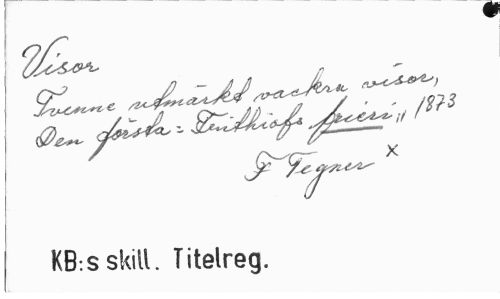 Visor
Tvenne utmärkt vackra visor,
Den första = Frithiofs frieri,, 1873
F Tegner x
KB:s skill. Titelreg.